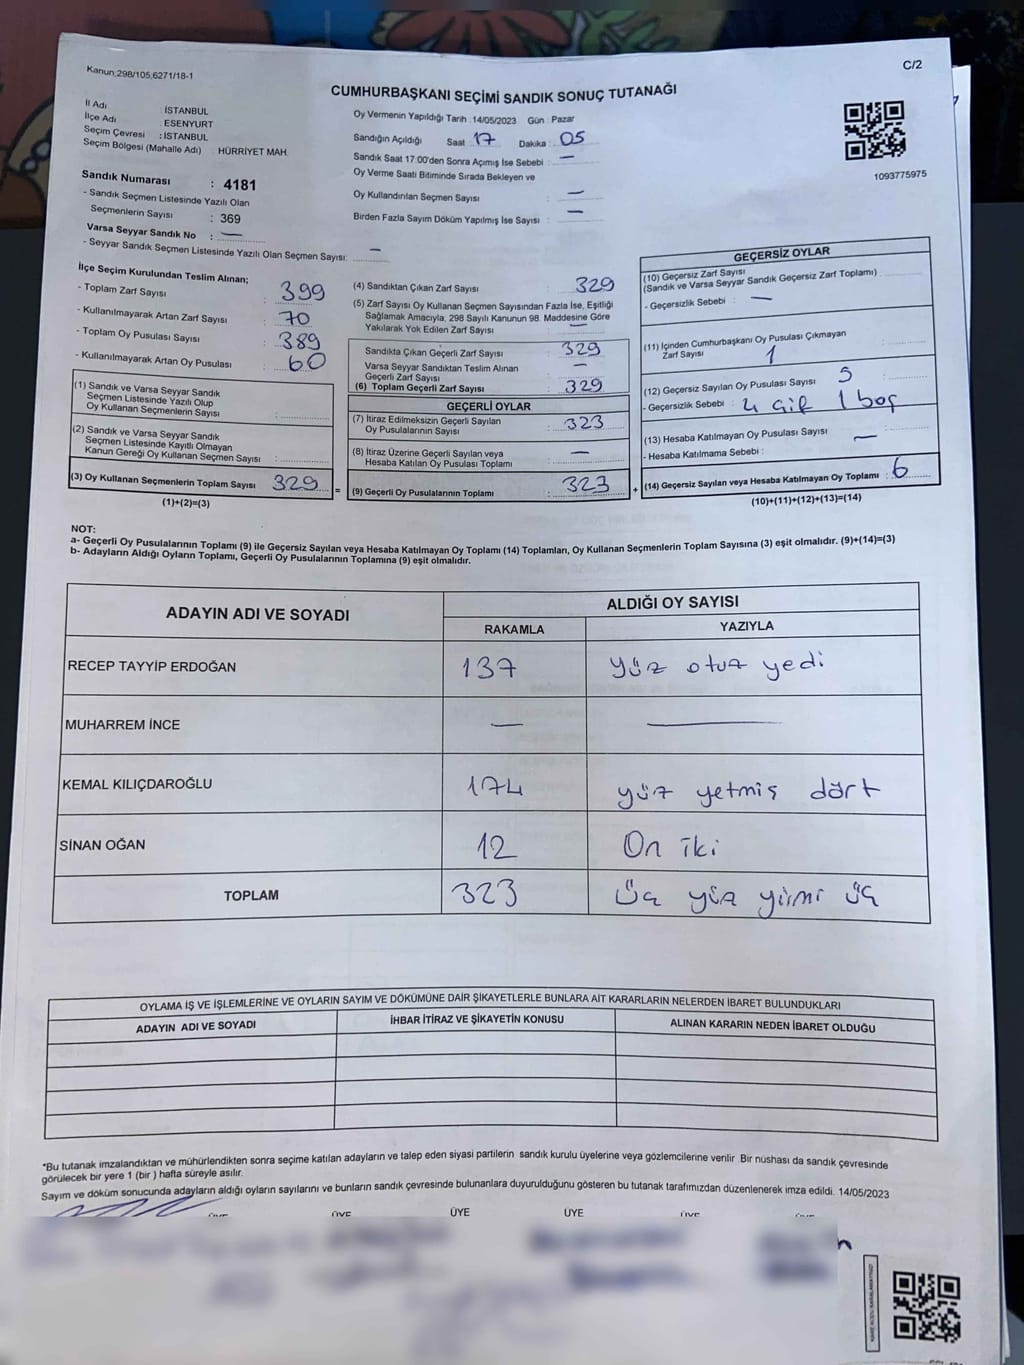 Kanun:298/105,6271/18-1
C/2
CUMHURBAŞKANI SEÇİMİ SANDIK SONUÇ TUTANAĞI
İl Adı : İSTANBUL
İlçe Adı : ESENYURT
Seçim Çevresi : İSTANBUL
Seçim Bölgesi (Mahalle Adı) : HÜRRİYET MAH.
Oy Vermenin Yapıldığı Tarih : 14/05/2023 Gün : Pazar
Sandığın Açıldığı Saat : 17 Dakika : 05
Sandık Saat 17:00'den Sonra Açımış İse Sebebi : —
Oy Verme Saati Bitiminde Sırada Bekleyen ve
Oy Kullandırılan Seçmen Sayısı : —
Birden Fazla Sayım Döküm Yapılmış İse Sayısı : —
1093775975
Sandık Numarası : 4181
- Sandık Seçmen Listesinde Yazılı Olan
Seçmenlerin Sayısı : 369
Varsa Seyyar Sandık No : —
- Seyyar Sandık Seçmen Listesinde Yazılı Olan Seçmen Sayısı: —
İlçe Seçim Kurulundan Teslim Alınan;
- Toplam Zarf Sayısı : 399
- Kullanılmayarak Artan Zarf Sayısı : 70
- Toplam Oy Pusulası Sayısı : 389
- Kullanılmayarak Artan Oy Pusulası : 60
(1) Sandık ve Varsa Seyyar Sandık
Seçmen Listesinde Yazılı Olup
Oy Kullanan Seçmenlerin Sayısı :
(2) Sandık ve Varsa Seyyar Sandık
Seçmen Listesinde Kayıtlı Olmayan
Kanun Gereği Oy Kullanan Seçmen Sayısı :
(3) Oy Kullanan Seçmenlerin Toplam Sayısı 329
(1)+(2)=(3)
=
(4) Sandıktan Çıkan Zarf Sayısı : 329
(5) Zarf Sayısı Oy Kullanan Seçmen Sayısından Fazla İse, Eşitliği
Sağlamak Amacıyla, 298 Sayılı Kanunun 98. Maddesine Göre
Yakılarak Yok Edilen Zarf Sayısı : —
Sandıkta Çıkan Geçerli Zarf Sayısı : 329
Varsa Seyyar Sandıktan Teslim Alınan
Geçerli Zarf Sayısı : —
(6) Toplam Geçerli Zarf Sayısı : 329
GEÇERLİ OYLAR
(7) İtiraz Edilmeksizin Geçerli Sayılan
Oy Pusulalarının Sayısı : 323
(8) İtiraz Üzerine Geçerli Sayılan veya
Hesaba Katılan Oy Pusulası Toplamı : —
(9) Geçerli Oy Pusulalarının Toplamı : 323
+
GEÇERSİZ OYLAR
(10) Geçersiz Zarf Sayısı
(Sandık ve Varsa Seyyar Sandık Geçersiz Zarf Toplamı)
- Geçersizlik Sebebi : —
(11) İçinden Cumhurbaşkanı Oy Pusulası Çıkmayan
Zarf Sayısı : 1
(12) Geçersiz Sayılan Oy Pusulası Sayısı : 5
- Geçersizlik Sebebi : 4 çift 1 boş
(13) Hesaba Katılmayan Oy Pusulası Sayısı : —
- Hesaba Katılmama Sebebi :
(14) Geçersiz Sayılan veya Hesaba Katılmayan Oy Toplamı : 6
(10)+(11)+(12)+(13)=(14)
NOT:
a- Geçerli Oy Pusulalarının Toplamı (9) ile Geçersiz Sayılan veya Hesaba Katılmayan Oy Toplamı (14) Toplamları, Oy Kullanan Seçmenlerin Toplam Sayısına (3) eşit olmalıdır. (9)+(14)=(3)
b- Adayların Aldığı Oyların Toplamı, Geçerli Oy Pusulalarının Toplamına (9) eşit olmalıdır.
ADAYIN ADI VE SOYADI
ALDIĞI OY SAYISI
RAKAMLA YAZIYLA
RECEP TAYYİP ERDOĞAN 137 yüz otuz yedi
MUHARREM İNCE — —
KEMAL KILIÇDAROĞLU 174 yüz yetmiş dört
SİNAN OĞAN 12 On iki
TOPLAM 323 Üç yüz yirmi üç
OYLAMA İŞ VE İŞLEMLERİNE VE OYLARIN SAYIM VE DÖKÜMÜNE DAİR ŞİKAYETLERLE BUNLARA AİT KARARLARIN NELERDEN İBARET BULUNDUKLARI
ADAYIN ADI VE SOYADI İHBAR İTİRAZ VE ŞİKAYETİN KONUSU ALINAN KARARIN NEDEN İBARET OLDUĞU
*Bu tutanak imzalandıktan ve mühürlendikten sonra seçime katılan adayların ve talep eden siyasi partilerin sandık kurulu üyelerine veya gözlemcilerine verilir. Bir nüshası da sandık çevresinde
görülecek bir yere 1 (bir ) hafta süreyle asılır.
Sayım ve döküm sonucunda adayların aldığı oyların sayılarını ve bunların sandık çevresinde bulunanlara duyurulduğunu gösteren bu tutanak tarafımızdan düzenlenerek imza edildi. 14/05/2023
ÜYE ÜYE ÜYE ÜYE ÜYE ÜYE